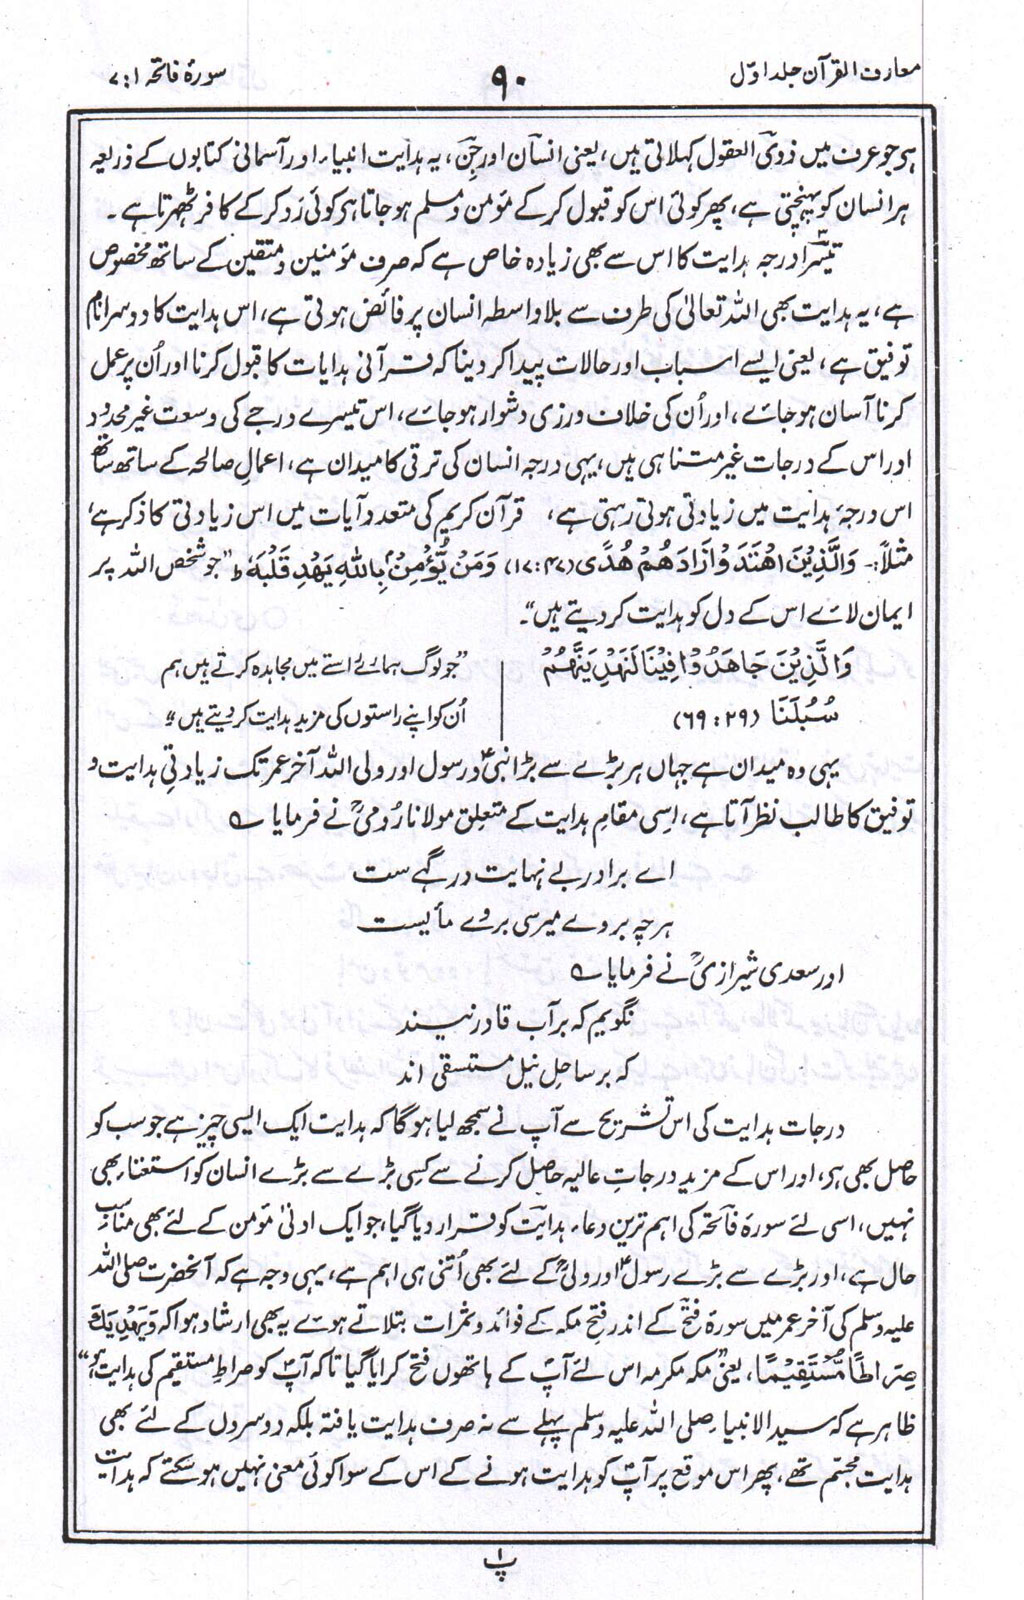 معارف القرآن جلد اوّل
۹۰
سورۂ فاتحہ ۱ : ۷
ہی جو عرف میں ذوی العقول کہلاتی ہیں، یعنی انسان اور جنّ، یہ ہدایت انبیاء اور آسمانی کتابوں کے ذریعہ
ہر انسان کو پہنچتی ہے، پھر کوئی اس کو قبول کرکے مؤمن و مسلم ہو جاتا ہی کوئی رَد کرکے کافر ٹھہرتا ہے۔
تیسرا درجہ ہدایت کا اس سے بھی زیادہ خاص ہے کہ صرف مؤمنین و متقین کے ساتھ مخصوص
ہے، یہ ہدایت بھی اللہ تعالیٰ کی طرف سے بلا واسطہ انسان پر فائض ہوتی ہے، اس ہدایت کا دوسرا نام
توفیق ہے، یعنی ایسے اسباب اور حالات پیدا کر دینا کہ قرآنی ہدایات کا قبول کرنا اور اُن پر عمل
کرنا آسان ہو جائے، اور اُن کی خلاف ورزی دشوار ہو جائے، اس تیسرے درجے کی وسعت غیر محدود
اور اس کے درجات غیر متناہی ہیں، یہی درجہ انسان کی ترقی کا میدان ہے، اعمالِ صالحہ کے ساتھ ساتھ
اس درجۂ ہدایت میں زیادتی ہوتی رہتی ہے، قرآن کریم کی متعدد آیات میں اس زیادتی کا ذکر ہے،
مثلاً:- وَالَّذِیْنَ اھْتَدَوْا زَادَھُمْ ھُدًی (۱۷:۴۷) وَمَنْ یُّؤْمِنْۢ بِاللّٰہِ یَھْدِ قَلْبَہٗ ط ”جو شخص اللہ پر
ایمان لائے اس کے دل کو ہدایت کر دیتے ہیں“۔
وَالَّذِیْنَ جَاھَدُوْا فِیْنَا لَنَھْدِیَنَّھُمْ
سُبُلَنَا (۶۹:۲۹)
”جو لوگ ہمارے راستے میں مجاہدہ کرتے ہیں ہم
اُن کو اپنے راستوں کی مزید ہدایت کر دیتے ہیں“
یہی وہ میدان ہے جہاں ہر بڑے سے بڑا نبیؑ و رسول اور ولی اللہ آخر عمر تک زیادتی ہدایت و
توفیق کا طالب نظر آتا ہے، اسی مقامِ ہدایت کے متعلق مولانا رُومیؒ نے فرمایا ؎
اے برادر بے نہایت در گہے ست
ہر چہ بر وے میرسی بر وے مأیست
اور سعدی شیرازیؒ نے فرمایا ؎
نگویم کہ بر آب قادر نیند
کہ بر ساحلِ نیل مستسقی اند
درجات ہدایت کی اس تشریح سے آپ نے سمجھ لیا ہوگا کہ ہدایت ایک ایسی چیز ہے جو سب کو
حاصل بھی ہی، اور اس کے مزید درجاتِ عالیہ حاصل کرنے سے کسی بڑے سے بڑے انسان کو استغناء بھی
نہیں، اسی لئے سورۂ فاتحہ کی اہم ترین دعاء ہدایت کو قرار دیا گیا، جو ایک ادنیٰ مؤمن کے لئے بھی مناسب
حال ہے، اور بڑے سے بڑے رسولؑ اور ولیؒ کے لئے بھی اُتنی ہی اہم ہے، یہی وجہ ہے کہ آنحضرت صلی اللہ
علیہ وسلم کی آخر عمر میں سورۂ فتح کے اندر فتحِ مکہ کے فوائد و ثمرات بتلاتے ہوئے یہ بھی ارشاد ہوا کہ وَیَھْدِیَکَ
صِرَاطًا مُّسْتَقِیْمًا، یعنی مکہ مکرمہ اس لئے آپؐ کے ہاتھوں فتح کرایا گیا تاکہ آپؐ کو صراطِ مستقیم کی ہدایت ہو“
ظاہر ہے کہ سید الانبیاء صلی اللہ علیہ وسلم پہلے سے نہ صرف ہدایت یافتہ بلکہ دوسروں کے لئے بھی
ہدایت مجسّم تھے، پھر اس موقع پر آپؐ کو ہدایت ہونے کے اس کے سوا کوئی معنی نہیں ہو سکتے کہ ہدایت
پ ۱